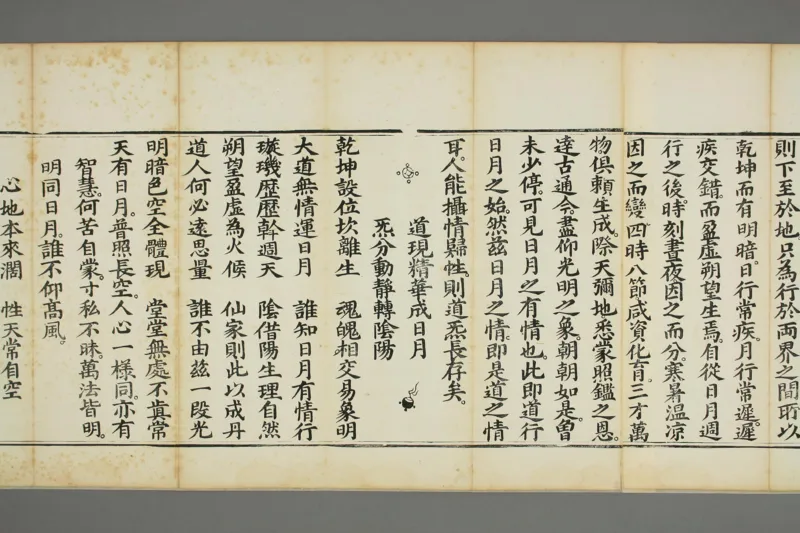 則下至於地只為行於兩界之間所以
乾坤而有明暗。日行常疾。月行常遲。遲
疾交錯。而盈虛朔望生焉。自從日月週
行之後。時刻晝夜因之而分。寒暑溫凉
因之而變。四時八節咸資化育。三才萬
物俱賴生成。際天彌地悉蒙照鑑之恩。
達古通今盡仰光明之象。朝朝如是。曾
未少停。可見日月之有情也。此即道行
日月之始。然玆日月之情。即是道之情
耳。人能攝情歸性。則道炁長存矣。
道現精華成日月
炁分動靜轉陰陽
乾坤設位坎離生　魂魄相交易象明
大道無情運日月　誰知日月有情行
璇璣歷歷幹週天　陰借陽生理自然
朔望盈虛為火候　仙家則此以成丹
道人何必遠思量　誰不由玆一段光
明暗色空全體現　堂堂無處不真常
天有日月。普照長空。人心一樣同。亦有
智慧。何苦自蒙。寸私不昧。萬法皆明。
明同日月。誰不仰高風。
心地本來濶　性天常自空